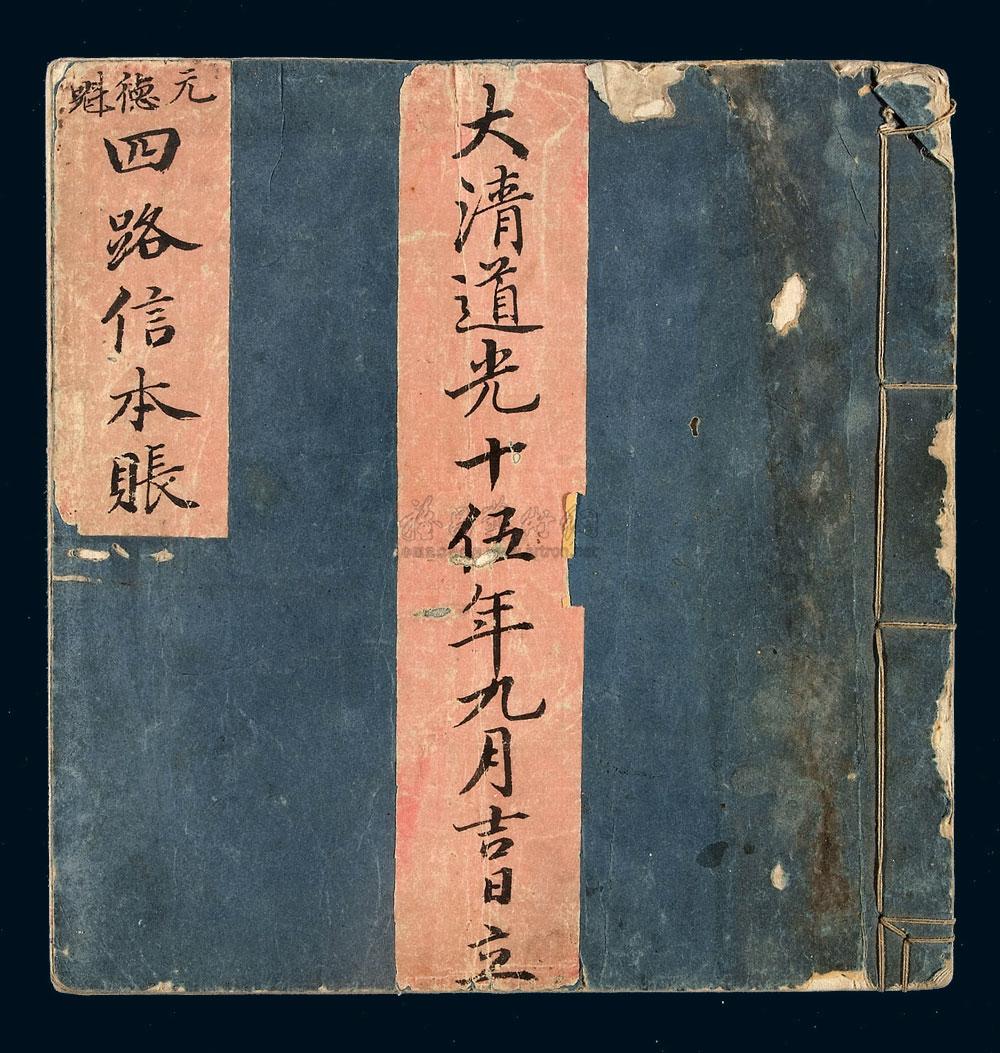 大清道光十伍年九月吉日立
元德魁
四路信本賬